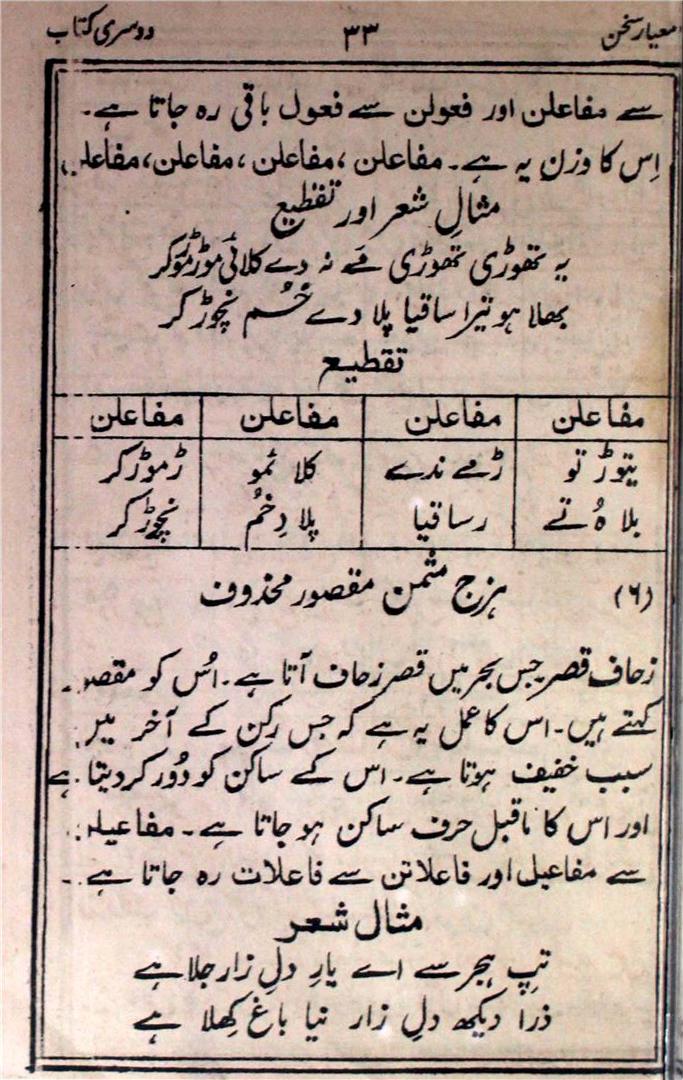 معیار سخن ۳۳ دوسری کتاب
سے مفاعلن اور فعولن سے فعول باقی رہ جاتا ہے۔
اِس کا وزن یہ ہے۔ مفاعلن، مفاعلن، مفاعلن، مفاعلن
مثالِ شعر اور تقطیع
یہ تھوڑی تھوڑی مے نہ دے کلائی موڑ موڑ کر
بھلا ہو تیرا ساقیا پلا دے خُم نچوڑ کر
تقطیع
مفاعلن مفاعلن مفاعلن مفاعلن
یتوڑ تو ڑمے ندے کلا ئمو ڑموڑ کر
بلا ہُ تے رساقیا پلا دِخُم نچوڑ کر
(۶) ہزج مثمن مقصور محذوف
زحاف قصر جس بحر میں قصر زحاف آتا ہے۔ اُس کو مقصور
کہتے ہیں۔ اس کا عمل یہ ہے کہ جس رکن کے آخر میں
سبب خفیف ہوتا ہے۔ اس کے ساکن کو دُور کر دیتا ہے
اور اس کا ماقبل حرف ساکن ہو جاتا ہے۔ مفاعیلن
سے مفاعیل اور فاعلاتن سے فاعلات رہ جاتا ہے۔
مثال شعر
تپِ ہجر سے اے یار دلِ زار جلا ہے
ذرا دیکھ دلِ زار نیا باغ کِھلا ہے